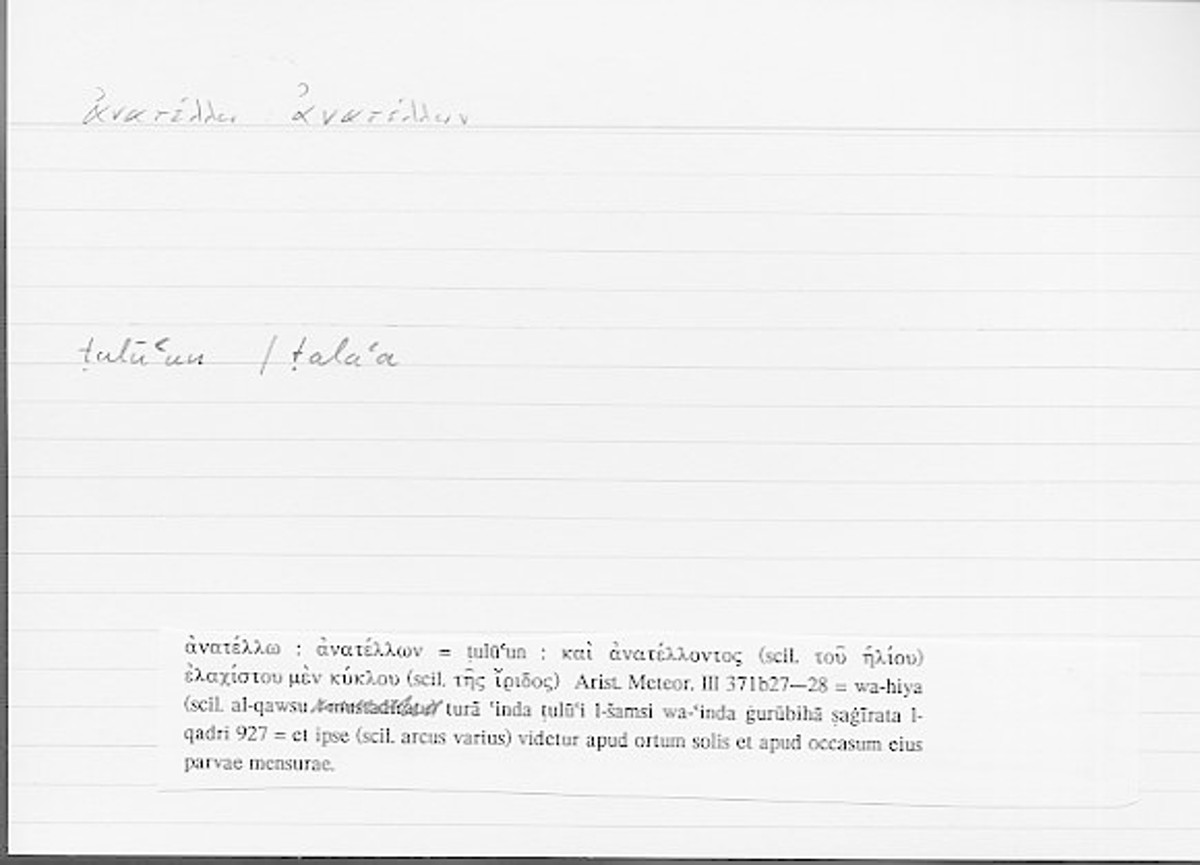 ἀνατέλλω : ἀνατέλλων
ṭulūʿun / ṭalaʿa
ἀνατέλλω : ἀνατέλλων = ṭulūʿun : καὶ ἀνατέλλοντος (scil. τοῦ ἡλίου)
ἐλαχίστου μὲν κύκλου (scil. τῆς ἴριδος) Arist. Meteor. III 371b27—28 = wa-hiya
(scil. al-qawsu turā ʿinda ṭulūʿi l-šamsi wa-ʿinda ġurūbihā ṣaġīrata l-
qadri 927 = et ipse (scil. arcus varius) videtur apud ortum solis et apud occasum eius
parvae mensurae.